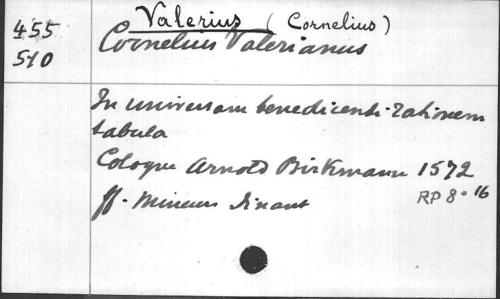 455 Valerius (Cornelius)
510 Cornelius Valerianus
In universam benedicendi rationem
tabula
Cologne Arnold Birkmann 1572
ff. Mineurs Dinant RP 8° 16